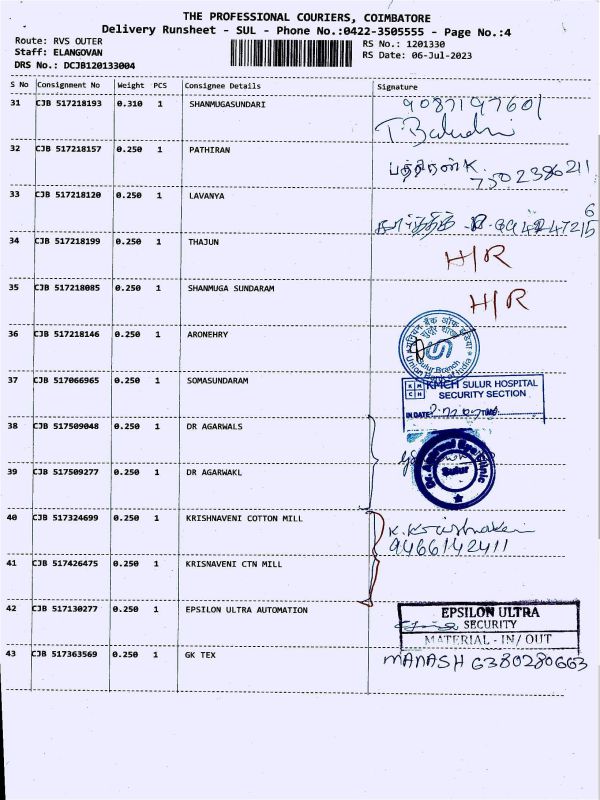 THE PROFESSIONAL COURIERS, COIMBATORE
Delivery Runsheet - SUL - Phone No.:0422-3505555 - Page No.:4
Route: RVS OUTER
RS No.: 1201330
Staff: ELANGOVAN
RS Date: 06-Jul-2023
DRS No.: DCJB120133004
S No Consignment No Weight PCS Consignee Details Signature
31 CJB 517218193 0.310 1 SHANMUGASUNDARI 9087197601
32 CJB 517218157 0.250 1 PATHIRAN பத்திரன் K. 7502386211
33 CJB 517218120 0.250 1 LAVANYA
34 CJB 517218199 0.250 1 THAJUN H/R
35 CJB 517218085 0.250 1 SHANMUGA SUNDARAM H/R
36 CJB 517218146 0.250 1 ARONEHRY
यूनियन बैंक ऑफ इंडिया
Sulur Branch
Union Bank of India
37 CJB 517066965 0.250 1 SOMASUNDARAM
KMCH SULUR HOSPITAL
SECURITY SECTION
IN DATE
38 CJB 517509048 0.250 1 DR AGARWALS
Dr. Agarwal Eye Clinic
Sulur
39 CJB 517509277 0.250 1 DR AGARWAKL
40 CJB 517324699 0.250 1 KRISHNAVENI COTTON MILL K. Krishnaveni
9466142411
41 CJB 517426475 0.250 1 KRISNAVENI CTN MILL
42 CJB 517130277 0.250 1 EPSILON ULTRA AUTOMATION EPSILON ULTRA
SECURITY
MATERIAL - IN/OUT
43 CJB 517363569 0.250 1 GK TEX MANASH 6380280663